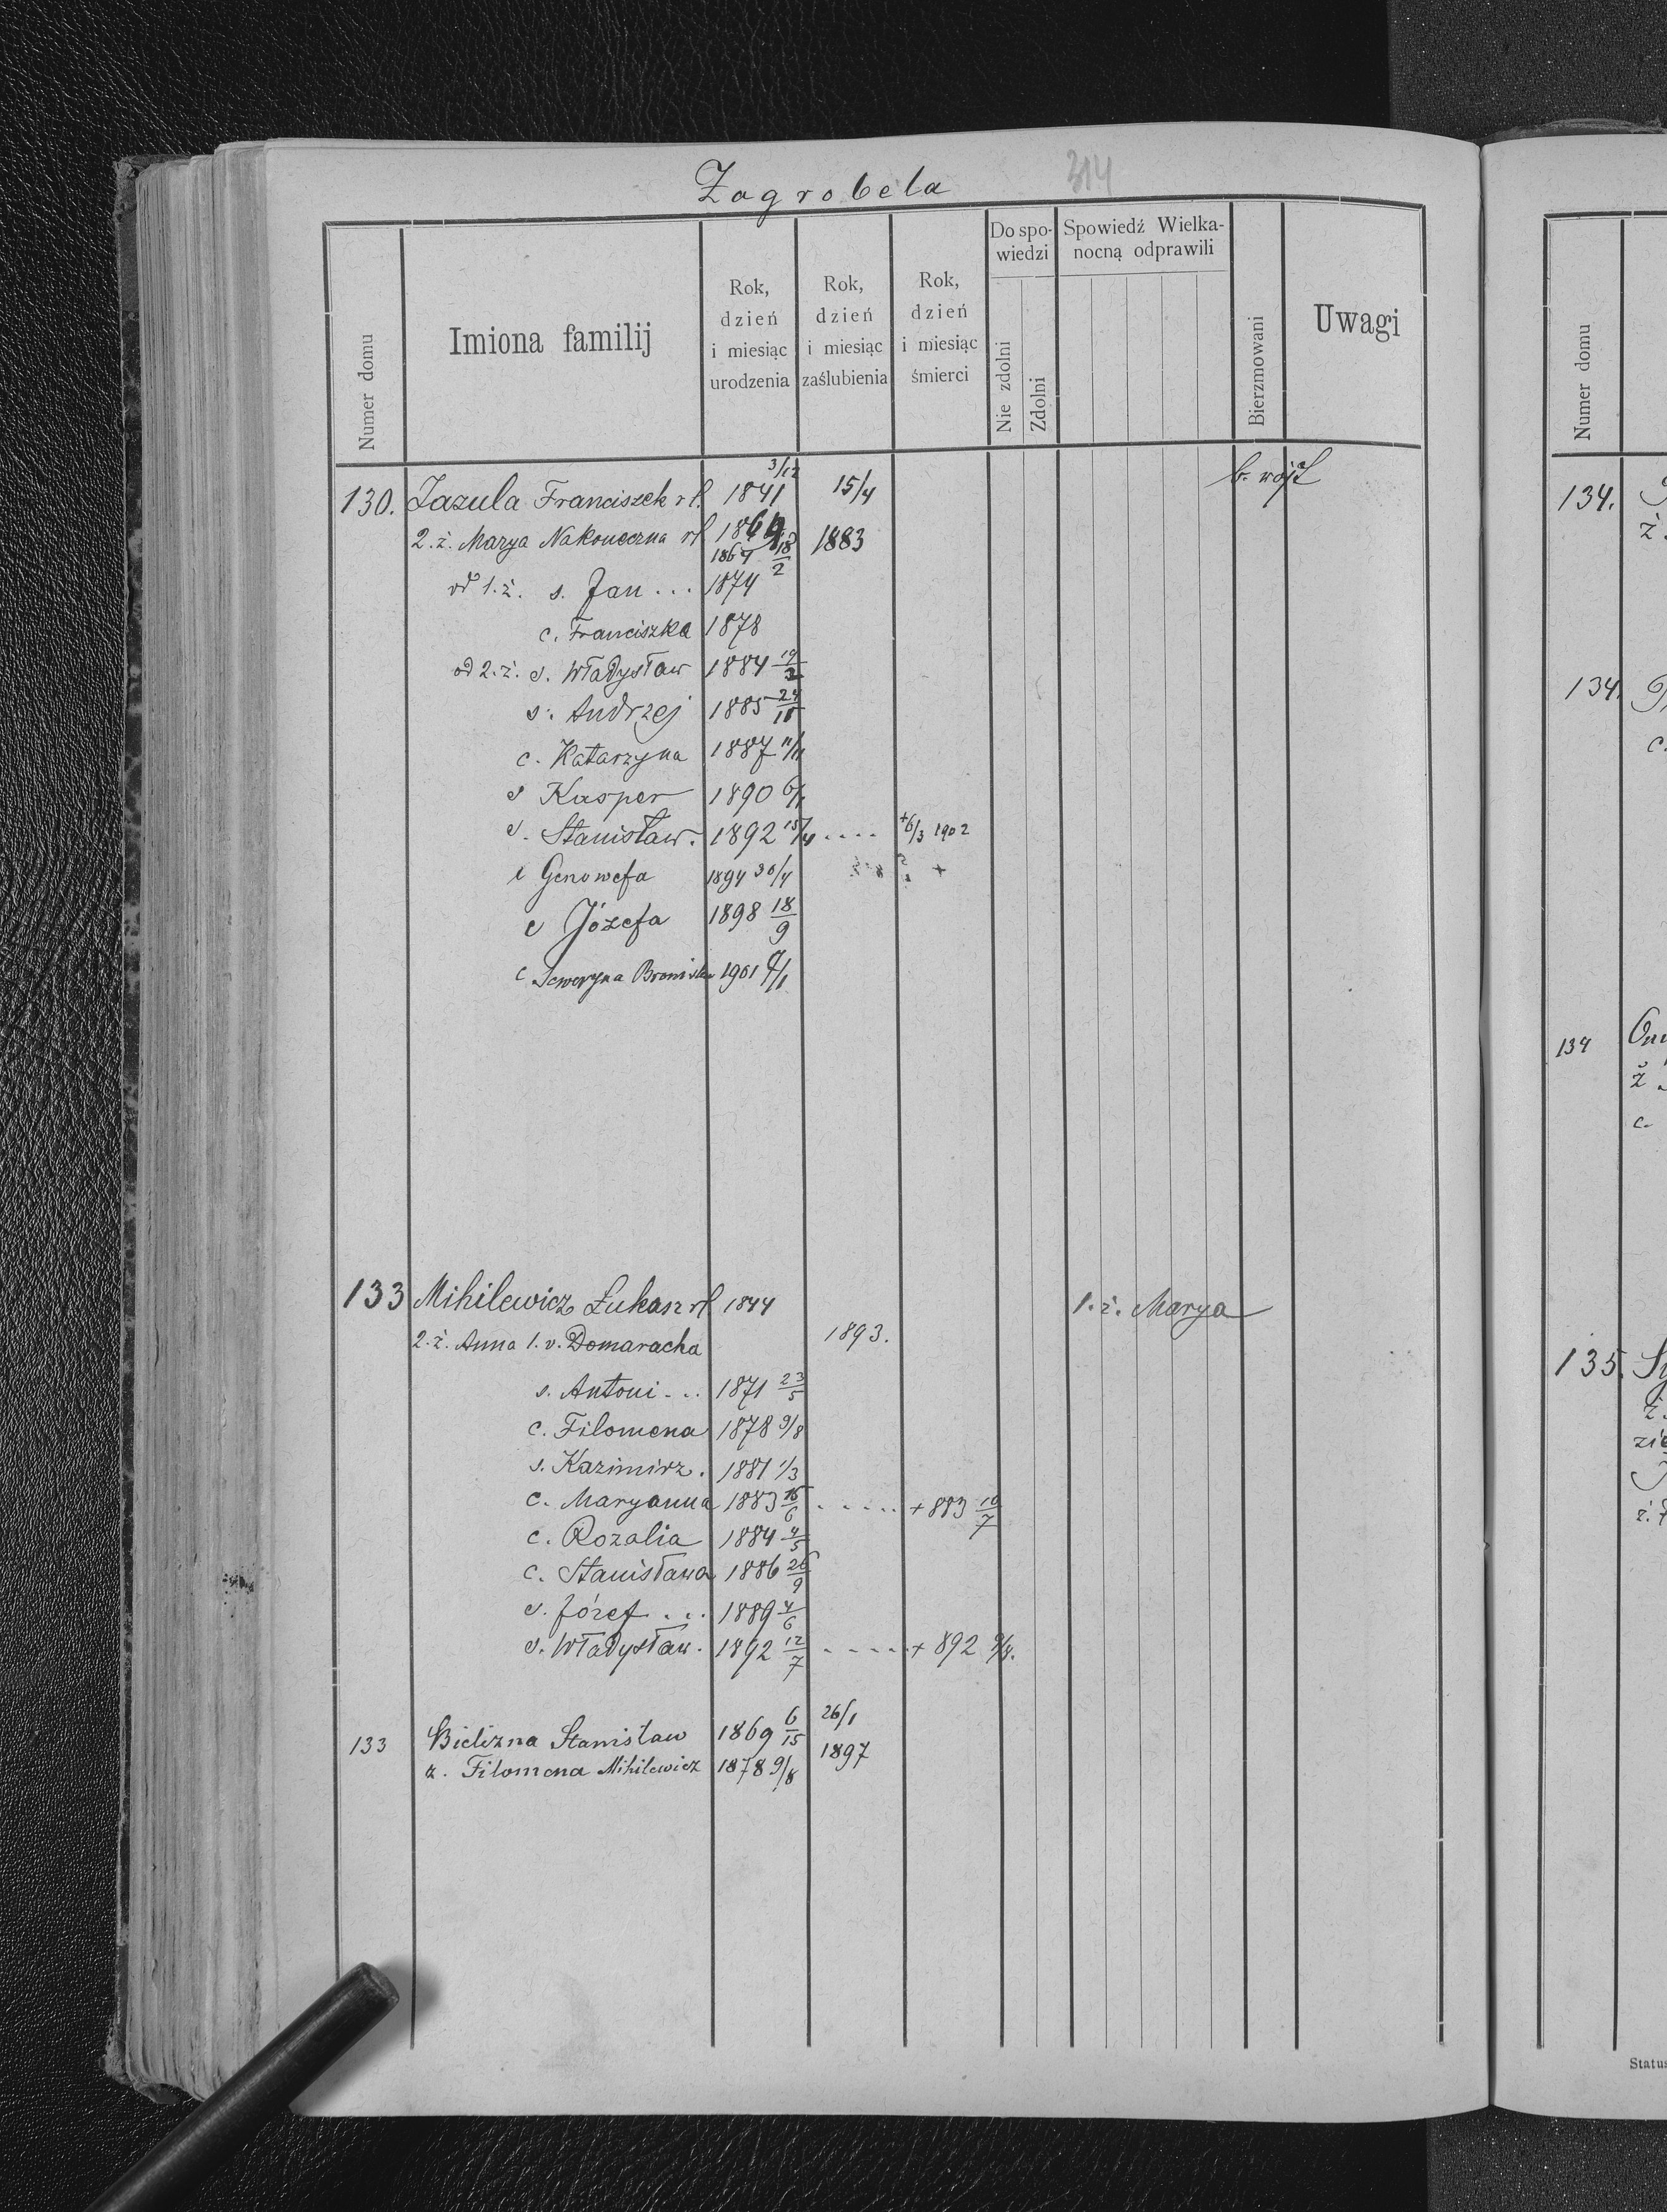 Zagrobela 314
Numer domu
Imiona familij
Rok, dzień i miesiąc urodzenia
Rok, dzień i miesiąc zaślubienia
Rok, dzień i miesiąc śmierci
Do spowiedzi
Nie zdolni
Zdolni
Spowiedź Wielkanocną odprawili
Bierzmowani
Uwagi
130. Zazula Franciszek rł. 1841 3/12 15/4 b. wójt
2. ż. Marya Nakoneczna rł 1864 1883
1864 18/2
od 1. ż. s. Jan ... 1874
c. Franciszka 1878
od 2. ż. s. Władysław 1884 19/2
s. Andrzej 1885 24/11
c. Katarzyna 1887 11/11
s Kasper 1890 6/1
s. Stanisław. 1892 15/4 .... +6/3 1902
c Genowefa 1894 30/4 +
c Józefa 1898 18/9
c Seweryna Bronisła 1901 9/1
133 Mihilewicz Łukasz rł 1844 1. ż. Marya
2. ż. Anna 1. v. Domaracha 1893.
s. Antoni ... 1871 23/5
c. Filomena 1878 9/8
s. Kazimirz. 1881 1/3
c. Maryanna 1883 16/6 ..... + 883 10/7
c. Rozalia 1884 4/5
c. Stanisława 1886 26/9
s. Józef ... 1889 4/6
s. Władysław. 1892 12/7 ..... + 892 9/8.
133 Bielizna Stanisław 1869 6/15 26/1
ż. Filomena Mihilewicz 1878 9/8 1897
Numer domu
134.
ż.
134.
c.
134
ż
c.
135.
ż.
ż.
Status